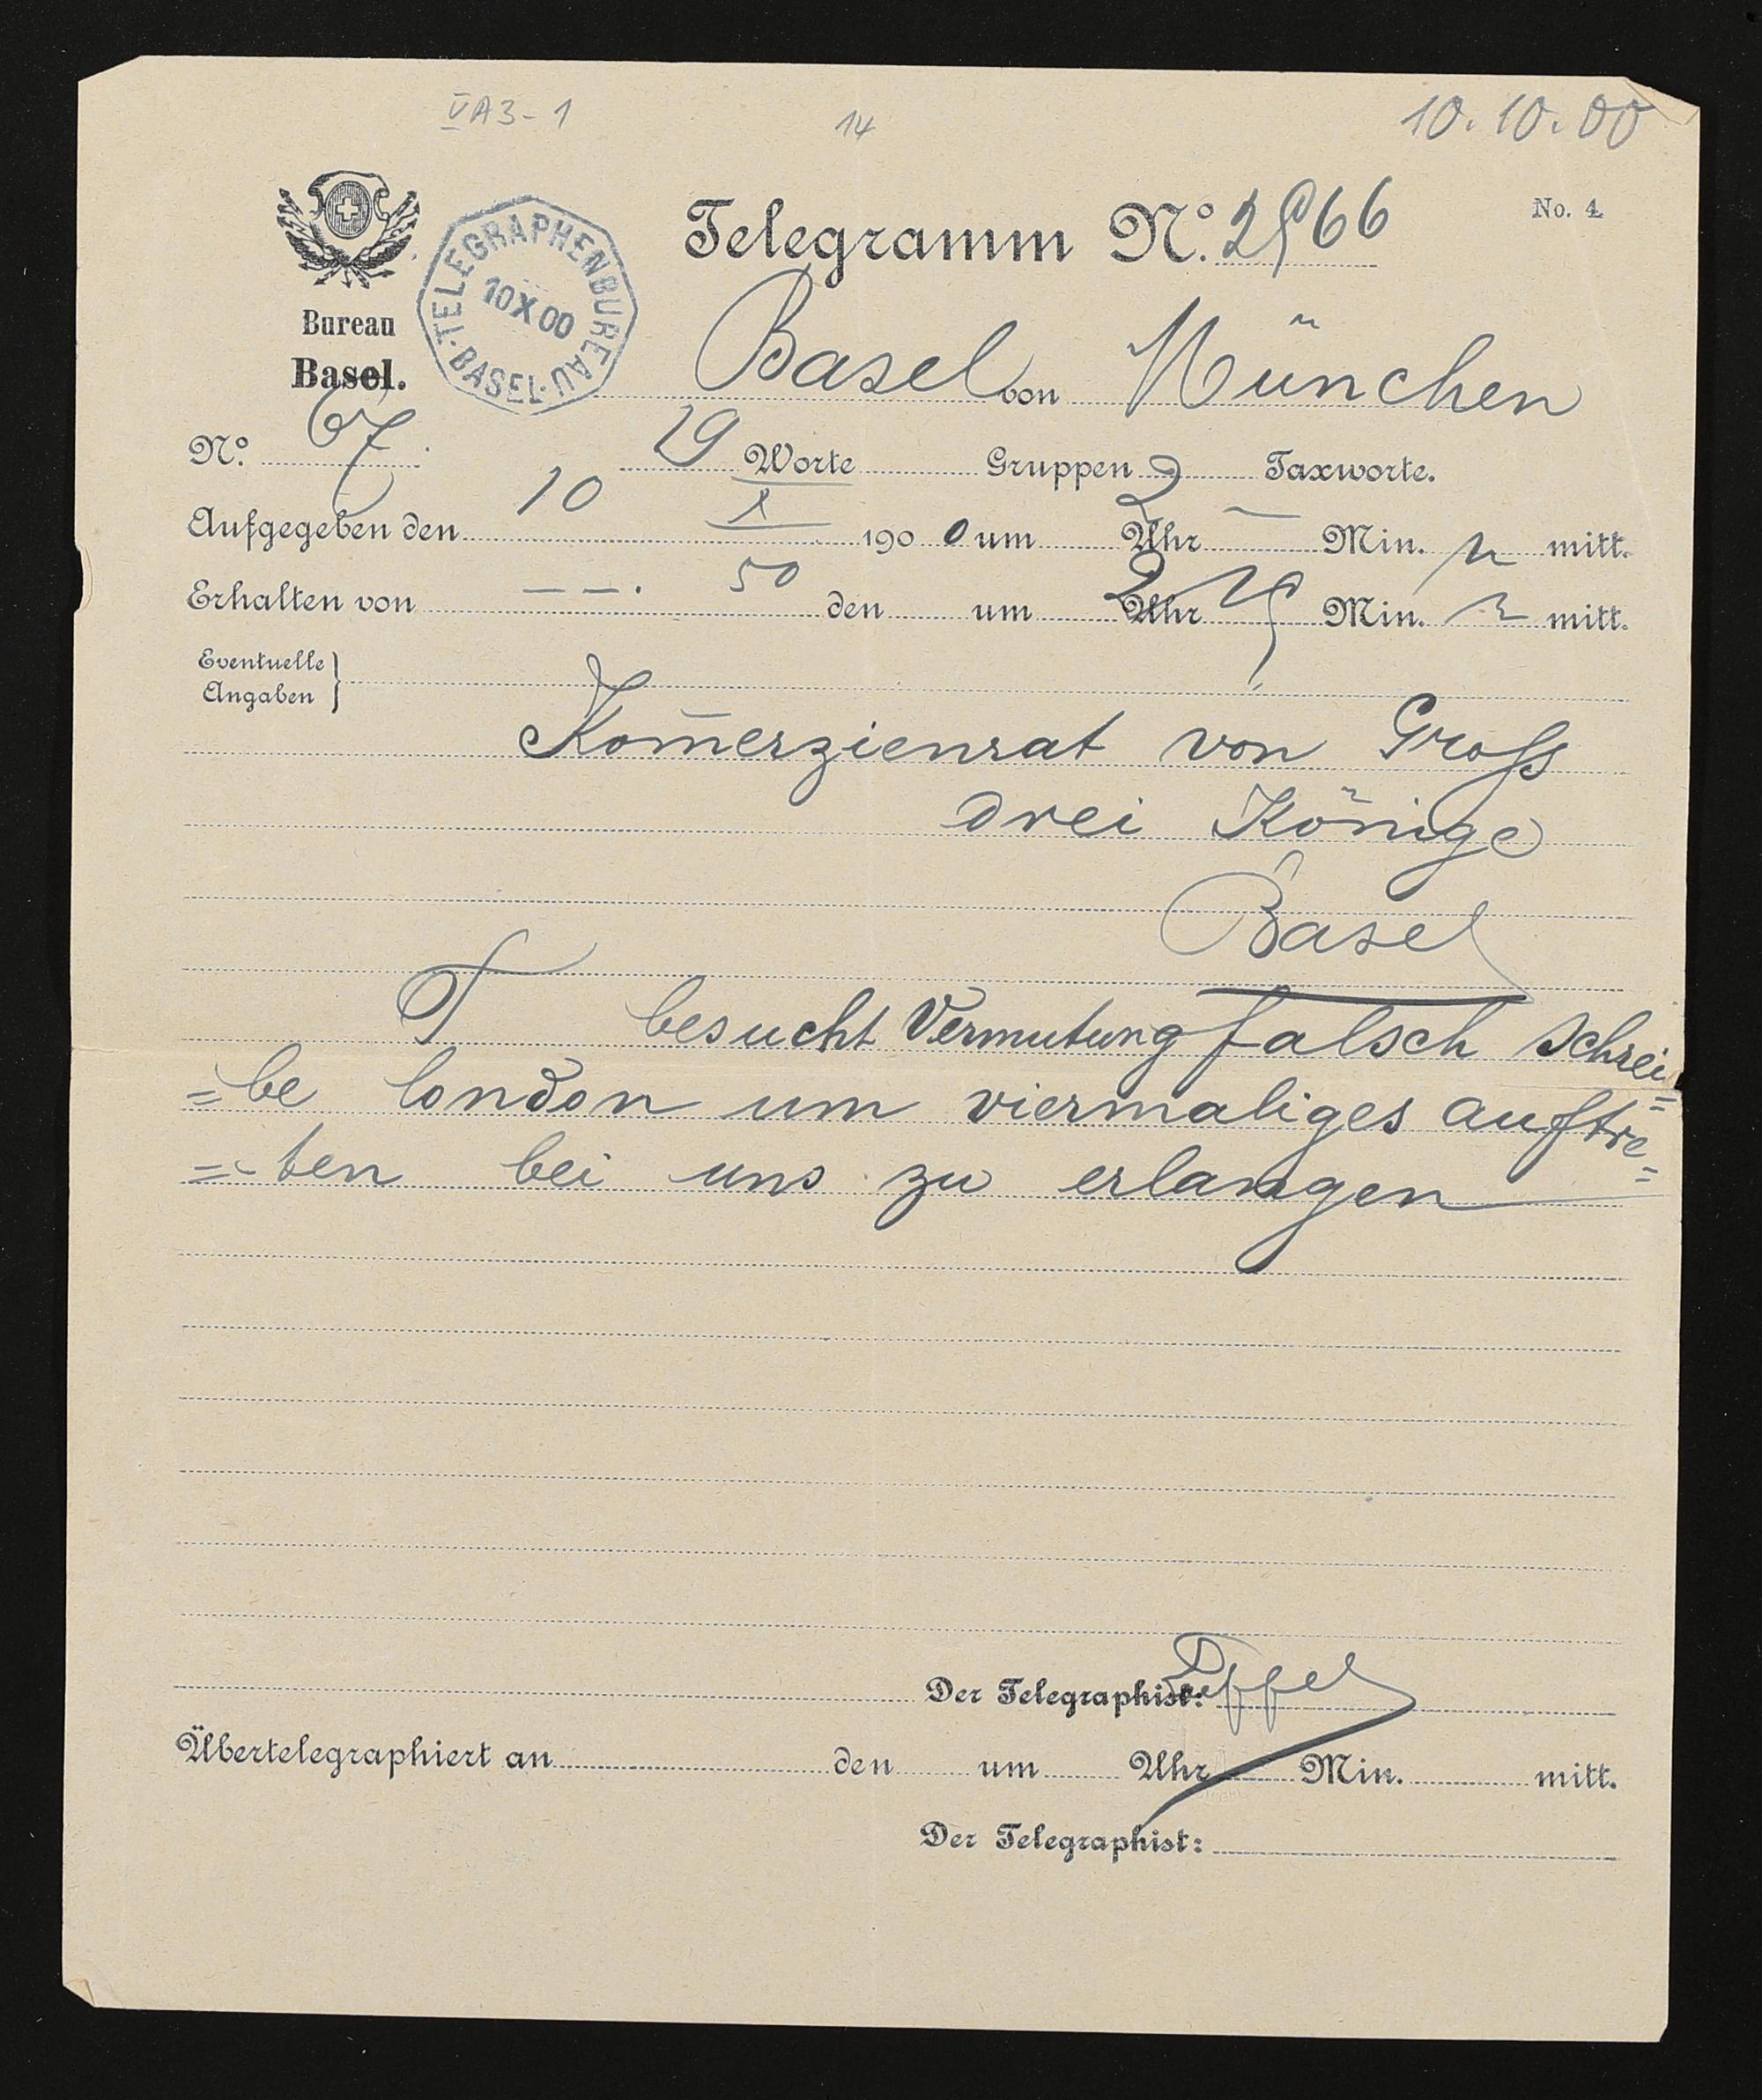 VA3-1 14 10.10.00
Telegramm No. 2566 No. 4
TELEGRAPHENBUREAU
10 X 00
BASEL
Bureau
Basel.
Basel von München
No. 67 19 Worte Gruppen Taxworte.
Aufgegeben den 10 X 1900 um 2 Uhr – Min. n mitt.
Erhalten von 50 den um 2 Uhr 25 Min. n mitt.
Eventuelle
Angaben
Kom̅erzienrat von Gross
drei Könige
Basel
T besucht Vermutung falsch schrei=
=be london um viermaliges auftre=
=ten bei uns zu erlangen
Der Telegraphist:
Übertelegraphiert an den um Uhr Min. mitt.
Der Telegraphist: